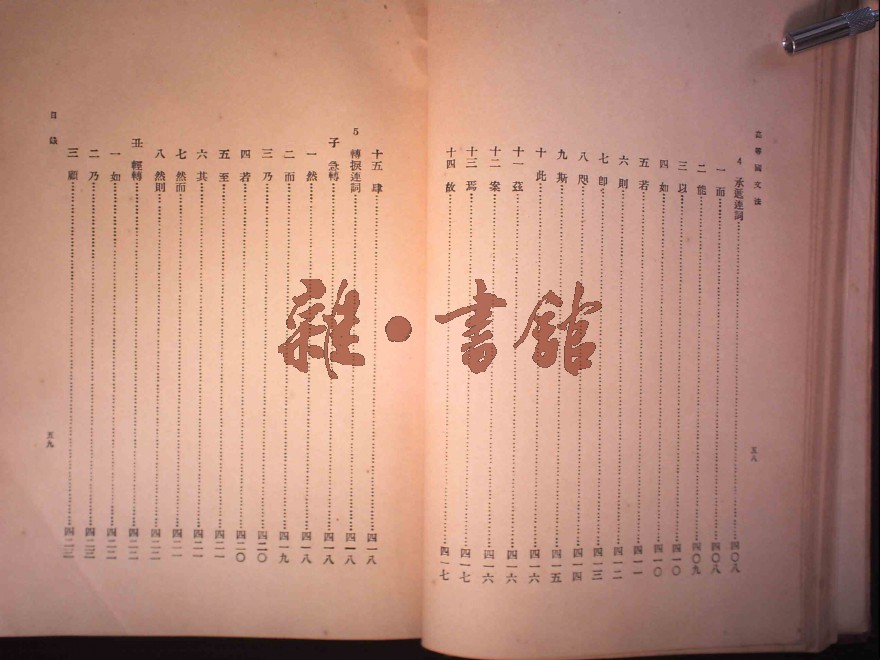 高等國文法
4 承遞連詞 四〇八
一 而 四〇八
二 能 四〇九
三 以 四一〇
四 如 四一〇
五 若 四一一
六 則 四一二
七 卽 四一三
八 咫 四一四
九 斯 四一五
十 此 四一六
十一 茲 四一六
十二 案 四一六
十三 焉 四一七
十四 故 四一七
五八
十五 肆 四一八
5 轉捩連詞 四一八
子 急轉 四一八
一 然 四一八
二 而 四一九
三 乃 四二〇
四 若 四二〇
五 至 四二一
六 其 四二一
七 然而 四二一
八 然則 四二二
丑 輕轉 四二二
一 如 四二二
二 乃 四二三
三 顧 四二三
目錄
五九
雜·書館